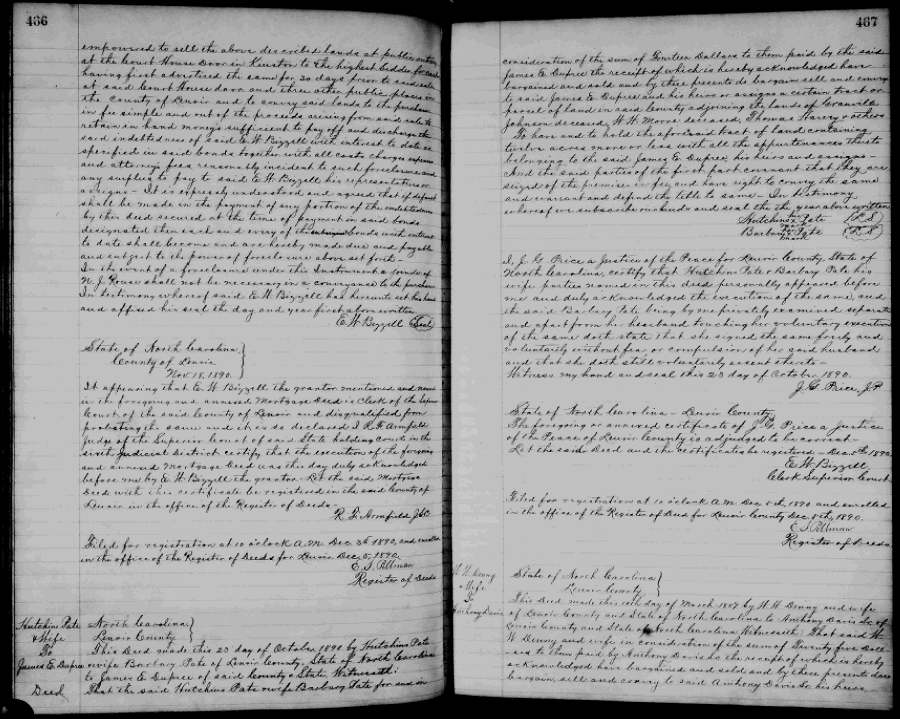 466
empowered to sell the above described lands at public auction
at the Court House Door in Kinston to the highest bidder for cash
having first advertised the same for 30 days prior to said sale
at said Court House door and three other public places in
the County of Lenoir and to convey said lands to the purchaser
in fee simple and out of the proceeds arising from said sale to
retain in hand money sufficient to pay off and discharge the
said indebtedness of said E W Bizzell with interest to date as
specified in said bonds together with all costs charges expenses
and attorneys fees reasonably incident to such foreclosure and
any surplus to pay to said E W Bizzell his representatives or
assigns - It is expressly understood and agreed that if default
shall be made in the payment of any portion of the indebtedness
by this deed secured at the time of payment in said bonds
designated then each and every of the bonds with interest
to date shall become and are hereby made due and payable
and subject to the power of foreclosure above set forth -
In the event of a foreclosure under this Instrument a joinder of
N. J. Rouse shall not be necessary in a conveyance to the purchaser
In testimony whereof said E. W Bizzell has hereunto set his hand
and affixed his seal the day and year first above written
E W Bizzell (Seal)
State of North Carolina
County of Lenoir
Nov 18, 1890.
It appearing that E. W Bizzell the grantor mentioned and named
in the foregoing and annexed Mortgage Deed is Clerk of the Superior
Court of the said County of Lenoir and disqualified from
probating the same and it is so declared I R. F. Armfield
Judge of the Superior Court of said State holding courts in the
sixth Judicial District certify that the execution of the foregoing
and annexed Mortgage Deed was this day duly acknowledged
before me by E. W Bizzell the grantor. Let the said Mortgage
Deed with this certificate be registered in the said County of
Lenoir in the office of the Register of Deeds.
R. F. Armfield J.S.C.
Filed for registration at 10 o'clock A.M. Dec 3th 1890, and enrolled
in the office of the Register of Deeds for Lenoir Dec 5, 1890.
E. S. Pittman
Register of Deeds
Hutchins Pate
& Wife
To
James E. Dupree
Deed
North Carolina
Lenoir County
This Deed made this 23 day of October 1890 by Hutchins Pate
& wife Barbary Pate of Lenoir County & State of North Carolina
to James E Dupree of said County & State Witnesseth:
That the said Hutchins Pate & wife Barbary Pate for and in
467
consideration of the sum of Fourteen Dollars to them paid by the said
James E. Dupree the receipt of which is hereby acknowledged have
bargained and sold and by these presents do bargain sell and convey
to said James E Dupree and his heirs or assigns a certain tract or
parcel of land in said County adjoining the lands of
Johnson deceased, W. H. Moore deceased, Thomas Harvey & others
To have and to hold the aforesaid tract of land containing
twelve acres more or less with all the appurtenances thereto
belonging to the said James E Dupree, his heirs and assigns -
And the said parties of the first part covenant that they are
seized of the premises in fee and have right to convey the same
and warrant and defend the title to same - In testimony
whereof we subscribe our hands and seal the the year above written
Hutchins Pate (L. S)
Barbary Pate (L. S)
mark
I, J. G. Price a Justice of the Peace for Lenoir County State of
North Carolina, certify that Hutchins Pate & Barbary Pate his
wife parties named in this deed personally appeared before
me and duly acknowledged the execution of the same, and
the said Barbary Pate being by me privately examined separate
and apart from her husband touching her voluntary execution
of the same doth state that she signed the same freely and
voluntarily without fear or compulsion of her said husband
and that she doth still voluntarily assent thereto -
Witness my hand and seal this 23 day of October 1890.
J. G. Price, J.P.
State of North Carolina - Lenoir County
The foregoing or annexed certificate of J. G. Price a justice
of the Peace of Lenoir County is adjudged to be correct -
Let the same Deed and the certificates be registered - Dec. 5th 1890
E. W Bizzell
Clerk Superior Court
Filed for registration at 10 o'clock A.M. Dec. 5th 1890 and enrolled
in the office of the Register of Deeds for Lenoir County Dec 8th, 1890.
E. S. Pittman
Register of Deeds
W. H. Denny
& Wife
To
Anthony Davis
State of North Carolina
Lenoir County
This Deed made this day of March 1887 by W H Denny and wife
of Lenoir County and State of North Carolina to Anthony Davis Sr of
Lenoir County and State of North Carolina, Witnesseth, That said W.
H Denny and wife in consideration of the sum of Seventy five Doll-
ars to them paid by Anthony Davis Sr the receipt of which is hereby
acknowledged have bargained and sold and by these presents does
bargain, sell and convey to said Anthony Davis Sr his heirs